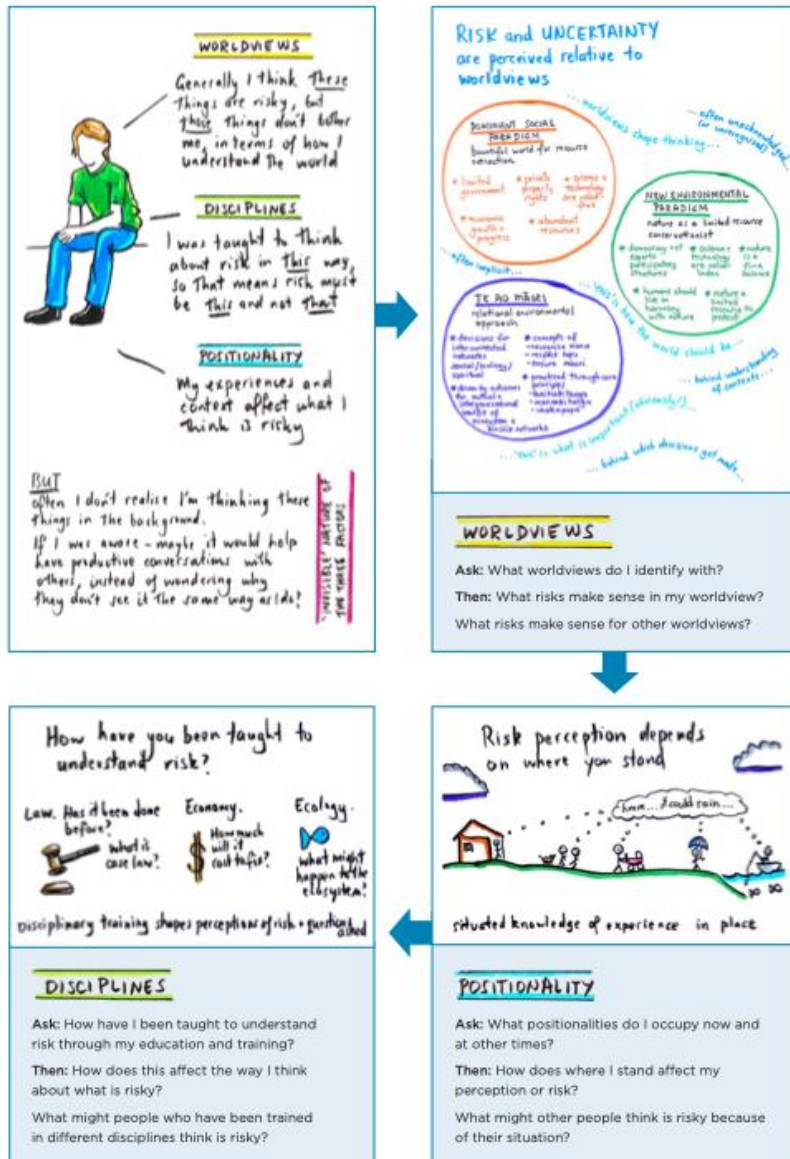 WORLDVIEWS
Generally I think These
Things are risky, but
Those Things don't bother
me, in terms of how I
understand the world
DISCIPLINES
I was taught to Think
about risk in This way,
so That means risk must
be This and not That
POSITIONALITY
My experiences and
context affect what I
Think is risky
BUT
often I don't realise I'm thinking these
Things in the background.
If I was aware - maybe it would help
have productive conversations with
others, instead of wondering why
They don't see it the same way as I do?
'INVISIBLE' NATURE OF
THE THREE FACTORS
RISK and UNCERTAINTY
are perceived relative to
worldviews
...worldviews shape thinking...
...often unacknowledged
(or unrecognised)...
DOMINANT SOCIAL
PARADIGM
bountiful world for resource
extraction
limited
government
private
property
rights
science +
technology
are value-
free
economic
growth =
progress
abundant
resources
NEW ENVIRONMENTAL
PARADIGM
nature as a limited resource
conservationist
democracy not
experts
participatory
structures
science +
technology
are value-
laden
nature
is a
fine
balance
humans should
live in
harmony
with nature
nature a
limited
resource to
protect
...often implicit...
TE AO MĀORI
relational environmental
approach
decisions for
interconnected
networks
social/ecology/
spiritual
concepts of
- recognise mana
- respect tapu
- ensure mauri
practised through core
principles
- kaitiakitanga
- manaakitanga
- whakapapa
driven by outcomes
for mutual +
intergenerational
benefit of
ecosystem +
kinship networks
...'this' is how the world should be...
...behind understanding
of contexts...
...'this' is what is important (obviously)...
...behind which decisions get made...
WORLDVIEWS
Ask: What worldviews do I identify with?
Then: What risks make sense in my worldview?
What risks make sense for other worldviews?
Risk perception depends
on where you stand
hmm... it could rain...
situated knowledge of experience in place
POSITIONALITY
Ask: What positionalities do I occupy now and
at other times?
Then: How does where I stand affect my
perception or risk?
What might other people think is risky because
of their situation?
How have you been taught to
understand risk?
Law. Has it been done
before?
What is
case law?
Economy.
How much
will it
cost to fix?
Ecology.
what might
happen to the
ecosystem?
Disciplinary training shapes perceptions of risk + questions
asked
DISCIPLINES
Ask: How have I been taught to understand
risk through my education and training?
Then: How does this affect the way I think
about what is risky?
What might people who have been trained
in different disciplines think is risky?